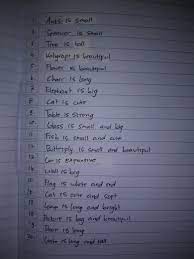 1. Ants is small
2. Spencer is small
3. Tree is tall
4. is beautiful
5. Flower is beautiful
6. Chair is long
7. Elephant is big
8. Cat is cute
9. Table is strong
10. Glass is small and big
11. Fish is small and cute
12. Butterfly is small and beautiful
13. Car is expensive
14. Wall is big
15. Flag is white and red
16. Cat is cute and soft
17. Lamp is long and bright
18. Picture is big and beautiful
19. Door is long
20. is long and tall